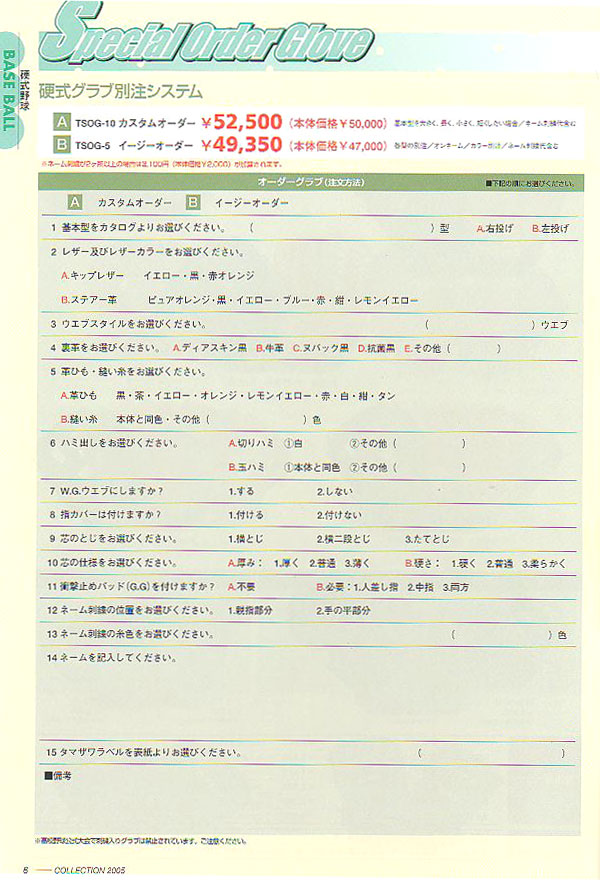 Special Order Glove
BASE BALL
硬式野球
硬式グラブ別注システム
A TSOG-10 カスタムオーダー ￥52,500 (本体価格￥50,000) 基本型を大きく、長く、小さく、短くしたい場合／ネーム刺繍代含む
B TSOG-5 イージーオーダー ￥49,350 (本体価格￥47,000) 各型の別注／オンネーム／カラー別注／ネーム刺繍代含む
※ネーム刺繍が2ヶ所以上の場合は2,100円（本体価格￥2,000）が加算されます。
オーダーグラブ（注文方法） ■下記の順にお選びください。
A カスタムオーダー B イージーオーダー
1 基本型をカタログよりお選びください。 （ ）型 A.右投げ B.左投げ
2 レザー及びレザーカラーをお選びください。
A.キップレザー イエロー・黒・赤オレンジ
B.ステアー革 ピュアオレンジ・黒・イエロー・ブルー・赤・紺・レモンイエロー
3 ウエブスタイルをお選びください。 （ ）ウエブ
4 裏革をお選びください。 A.ディアスキン黒 B.牛革 C.ヌバック黒 D.抗菌黒 E.その他（ ）
5 革ひも・縫い糸をお選びください。
A.革ひも 黒・茶・イエロー・オレンジ・レモンイエロー・赤・白・紺・タン
B.縫い糸 本体と同色・その他（ ）色
6 ハミ出しをお選びください。 A.切りハミ ①白 ②その他（ ）
B.玉ハミ ①本体と同色 ②その他（ ）
7 W.G.ウエブにしますか？ 1.する 2.しない
8 指カバーは付けますか？ 1.付ける 2.付けない
9 芯のとじをお選びください。 1.横とじ 2.横二段とじ 3.たてとじ
10 芯の仕様をお選びください。 A.厚み： 1.厚く 2.普通 3.薄く B.硬さ： 1.硬く 2.普通 3.柔らかく
11 衝撃止めパッド（G.G）を付けますか？ A.不要 B.必要：1.人差し指 2.中指 3.両方
12 ネーム刺繍の位置をお選びください。 1.親指部分 2.手の平部分
13 ネーム刺繍の糸色をお選びください。 （ ）色
14 ネームを記入してください。
15 タマザワラベルを表紙よりお選びください。 （ ）
■備考
※高校野球などの大会で刺繍入りグラブは禁止されています。ご注意ください。
6 COLLECTION 2005